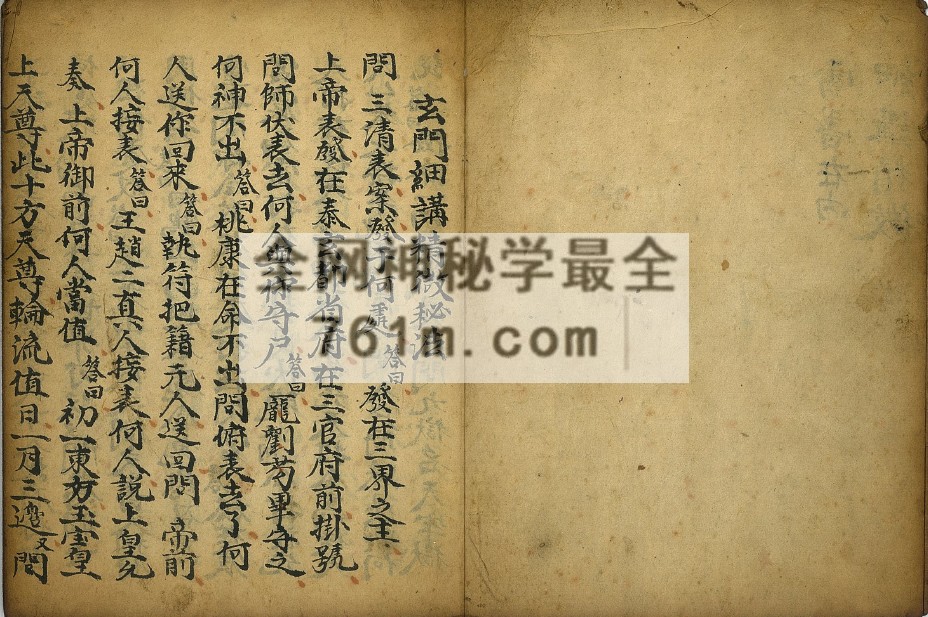 玄門細講精微秘
問 三清表案發于何處答曰發在三界之主
上帝表發在泰 省府在三官府前掛號
問師伏表去何人 守户答曰龐劉茍畢守之
何神不出答曰桃康在命不出問俯表去了何
人送你回來答曰執符把籍允人送回問 帝前
何人接表答曰王趙二真人接表何人說上皇允
奏 上帝御前何人當值答曰初一東方玉宝皇
上天尊此十方天尊輪流值日一月三邊又問
全网神秘学最全
761m.com